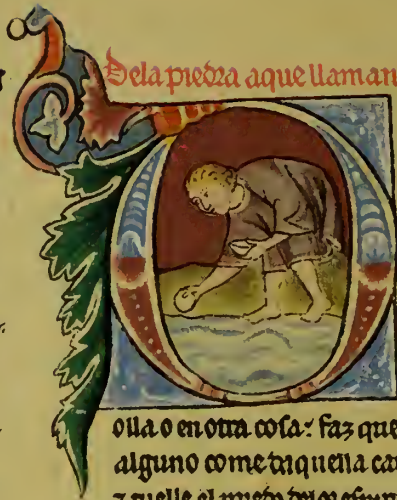 De la piedra aque llaman
olla o en otra cosa: faz que
alguno come daquella ca